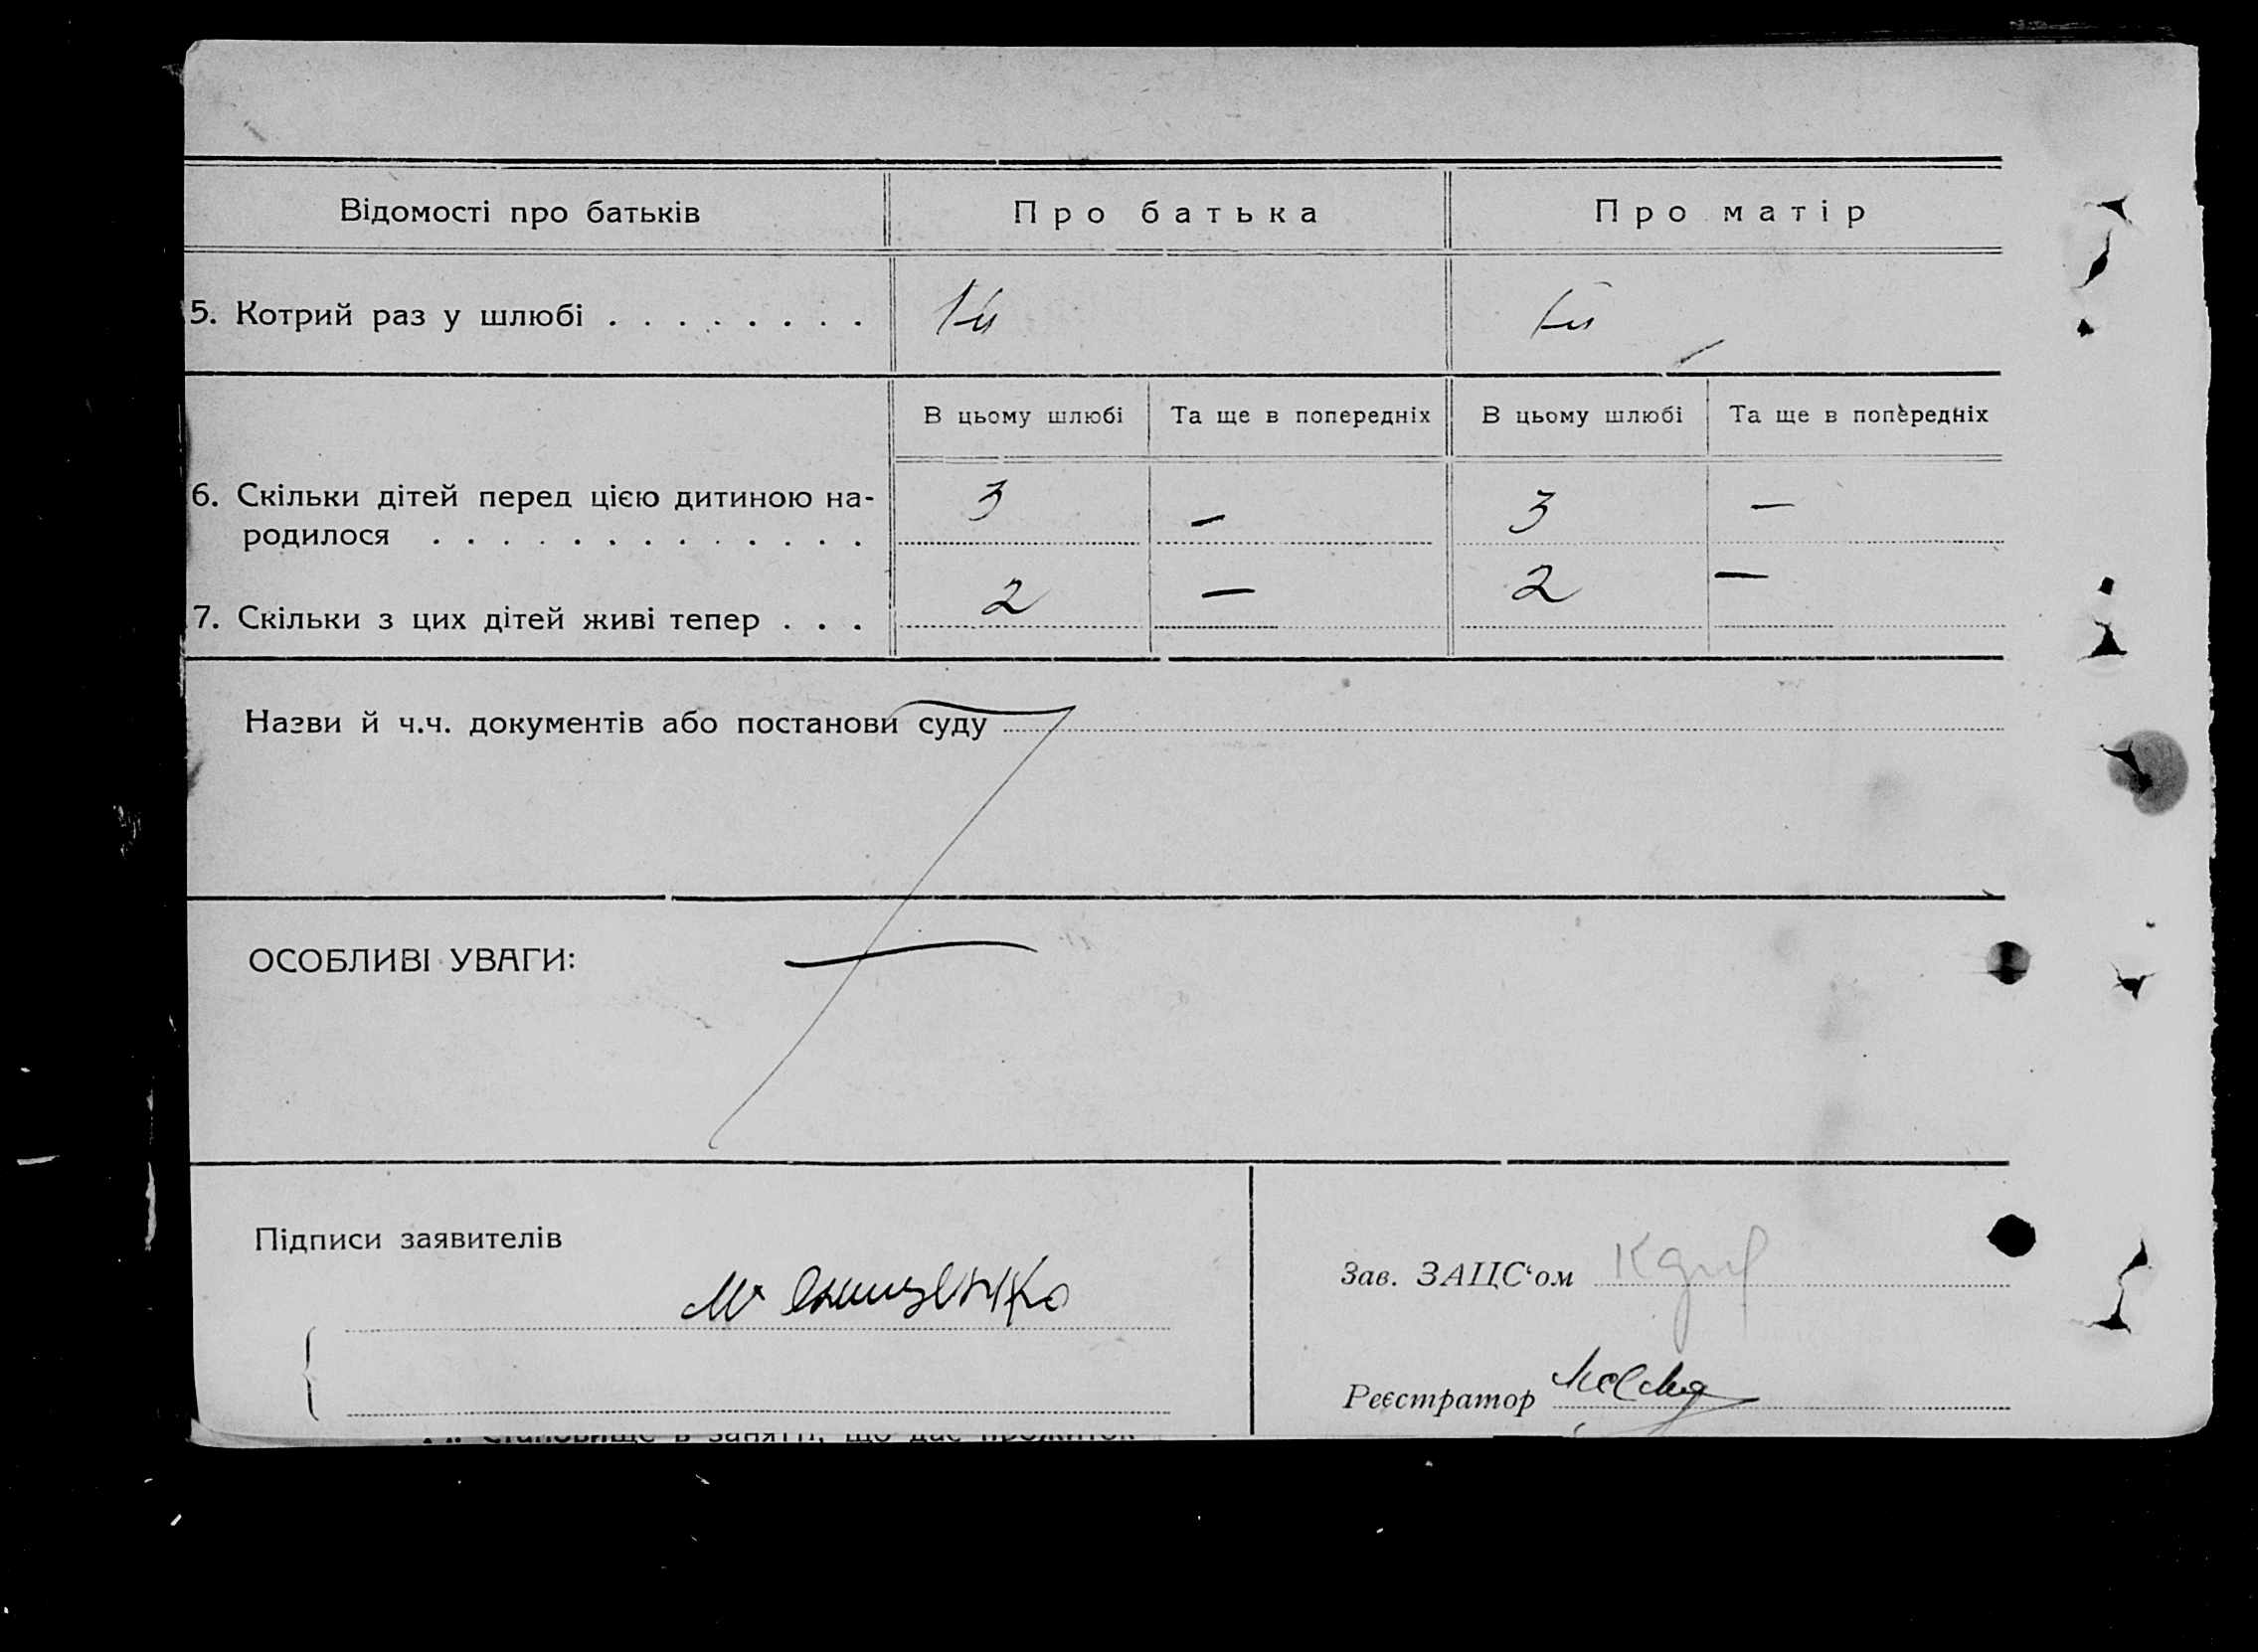 Відомості про батьків Про батька Про матір
5. Котрий раз у шлюбі . . . . . . . . 1й 1й
В цьому шлюбі Та ще в попередніх В цьому шлюбі Та ще в попередніх
6. Скільки дітей перед цією дитиною на-
родилося . . . . . . . . . . . . . 3 — 3 —
7. Скільки з цих дітей живі тепер . . . 2 — 2 —
Назви й ч.ч. документів або постанови суду
ОСОБЛИВІ УВАГИ: —
Підписи заявителів
Зав. ЗАЦС‘ом
Реєстратор
Становище в занятті, що дає прожиток